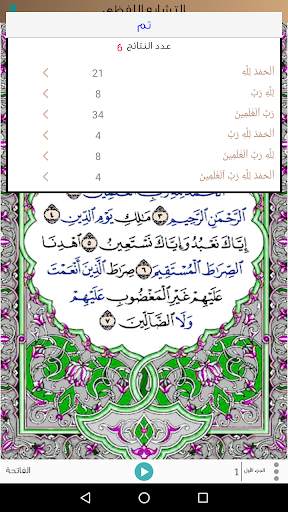 التشابه اللفظي
تم
عدد النتائج 6
الحَمدُ لِلَّهِ 21
لِلَّهِ رَبِّ 8
رَبِّ العَٰلَمِينَ 34
الحَمدُ لِلَّهِ رَبِّ 4
لِلَّهِ رَبِّ العَٰلَمِينَ 8
الحَمدُ لِلَّهِ رَبِّ العَٰلَمِينَ 4
ٱلرَّحْمَٰنِ ٱلرَّحِيمِ ٣ مَٰلِكِ يَوْمِ ٱلدِّينِ ٤
إِيَّاكَ نَعْبُدُ وَإِيَّاكَ نَسْتَعِينُ ٥ ٱهْدِنَا
ٱلصِّرَٰطَ ٱلْمُسْتَقِيمَ ٦ صِرَٰطَ ٱلَّذِينَ أَنْعَمْتَ
عَلَيْهِمْ غَيْرِ ٱلْمَغْضُوبِ عَلَيْهِمْ
وَلَا ٱلضَّآلِّينَ ٧
الجزء الأول 1 الفاتحة